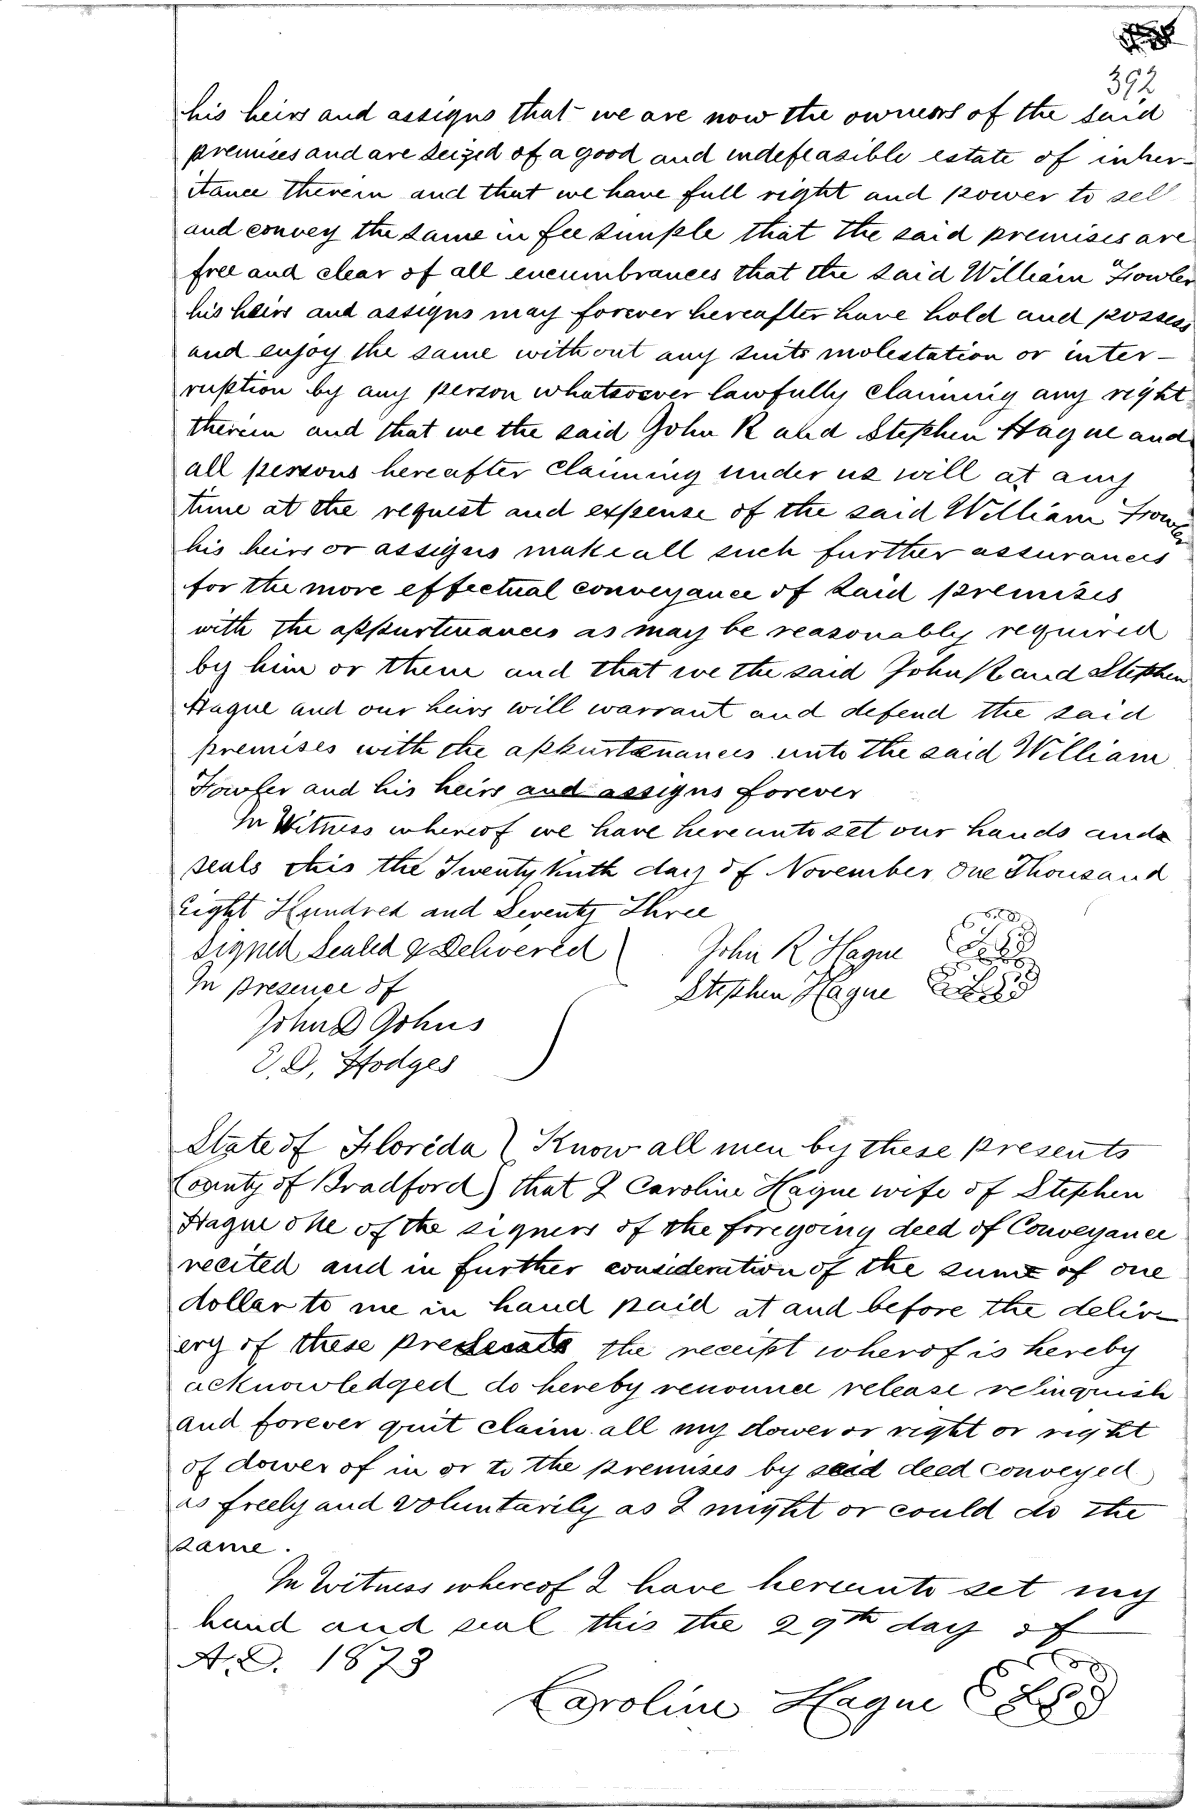 392
his heirs and assigns that we are now the owners of the said
premises and are seized of a good and indefeasible estate of inher-
itance therein and that we have full right and power to sell
and convey the same in fee simple that the said premises are
free and clear of all encumbrances that the said William Fowler
his heirs and assigns may forever hereafter have hold and possess
and enjoy the same without any suits molestation or inter-
ruption by any person whatsoever lawfully claiming any right
therein and that we the said John R and Stephen Hague and
all persons hereafter claiming under us will at any
time at the request and expense of the said William Fowler
his heirs or assigns make all such further assurances
for the more effectual conveyance of said premises
with the appurtenances as may be reasonably required
by him or them and that we the said John R and Stephen
Hague and our heirs will warrant and defend the said
premises with the appurtenances unto the said William
Fowler and his heirs and assigns forever
In Witness whereof we have hereunto set our hands and
seals this the Twenty Ninth day of November One Thousand
Eight Hundred and Seventy Three
Signed Sealed & Delivered John R Hague LS
In presence of Stephen Hague LS
John D Johns
E. D. Hodges
State of Florida } Know all men by these presents
County of Bradford } that I Caroline Hague wife of Stephen
Hague one of the signers of the foregoing deed of Conveyance
recited and in further consideration of the sum of one
dollar to me in hand paid at and before the deliv-
ery of these presents the receipt wherof is hereby
acknowledged do hereby renounce release relinquish
and forever quit claim all my dower or right or right
of dower of in or to the premises by said deed conveyed
as freely and voluntarily as I might or could do the
same.
In Witness whereof I have hereunto set my
hand and seal this the 29th day of
A.D. 1873
Caroline Hague LS